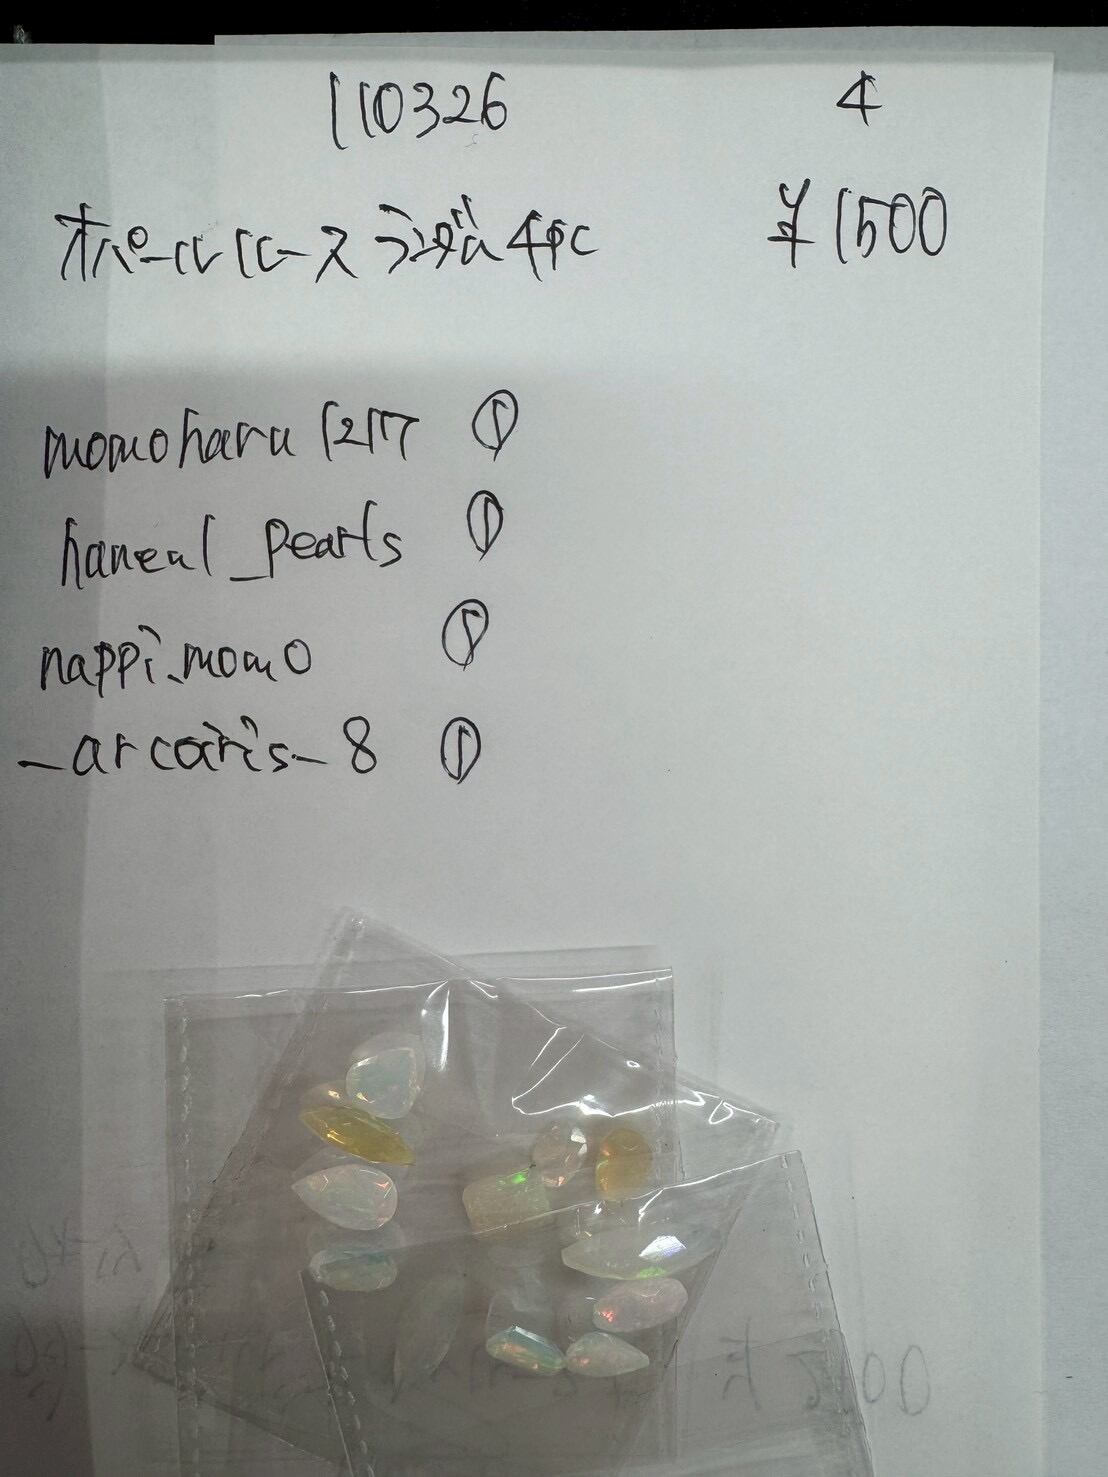 110326 4
オパールルースランダム4pc ¥1500
momoharu1217 ①
haneul_pearls ①
nappi.momo ①
_arcoiris_8 ①